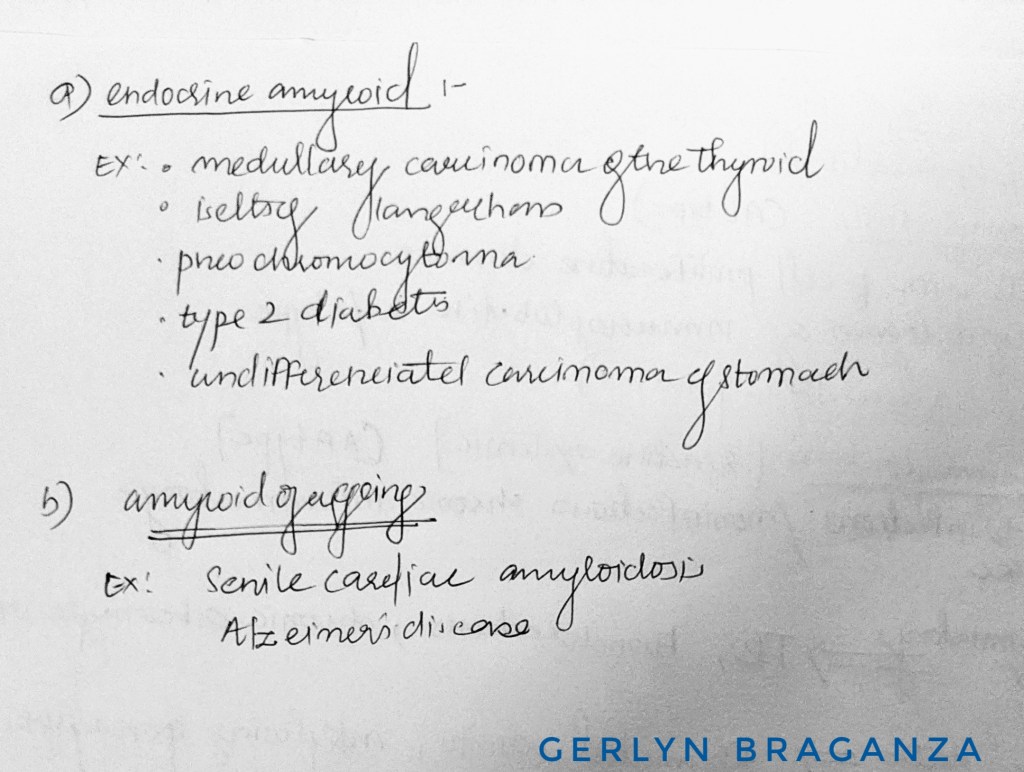 a) endocrine amyloid :-
EX: • medullary carcinoma of the thyroid
• islet of langerhans
• pheochromocytoma
• type 2 diabetis
• undifferenciated carcinoma of stomach
b) amyloid of aging
EX: Senile cardiac amyloidosis
Alzeimer's disease
GERLYN BRAGANZA